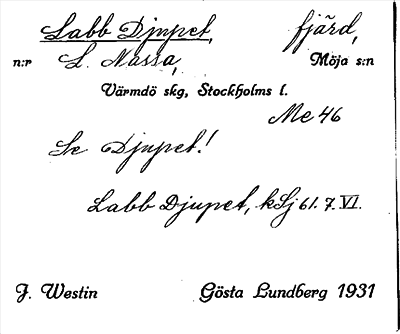 Labb Djupet, fjärd,
n:r L. Nassa, Möja s:n
Värmdö skg, Stockholms l.
Me 46
Se Djupet!
Labb Djupet, kSj 61. 7. VI.
J. Westin Gösta Lundberg 1931